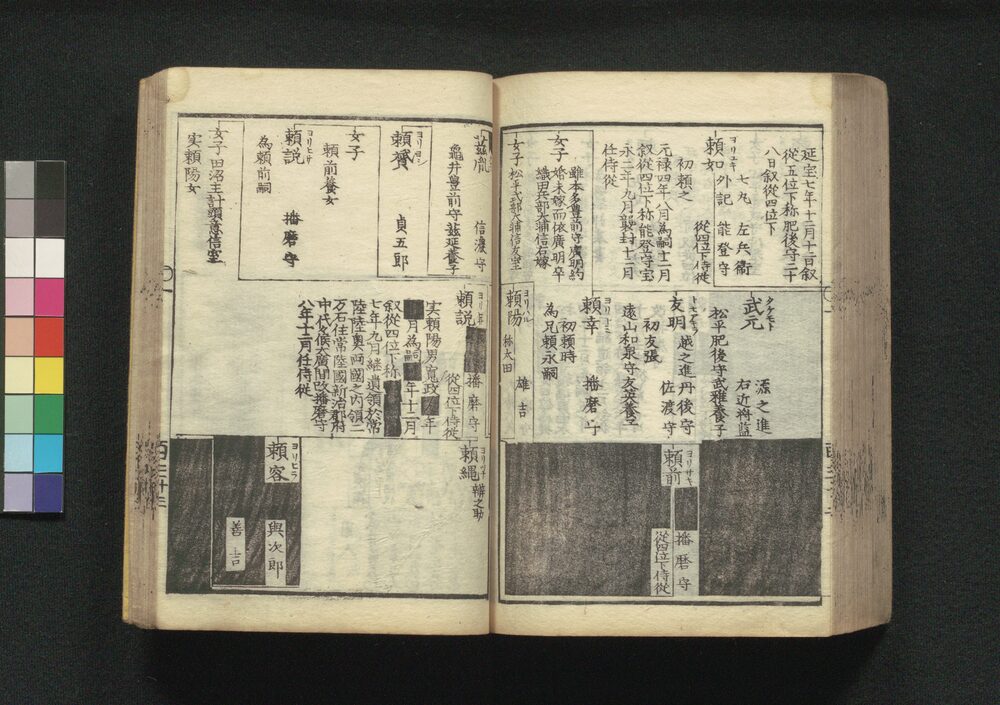 延宝七年十二月十二日叙
從五位下称肥後守二十
八日叙從四位下
ヨリユキ
頼如
七丸 左兵衛
外記 能登守
從四位下侍従
初頼之
元禄四年八月為嗣十二月
叙從四位下称能登守宝
永二年九月襲封十二月
任侍從
女子
雖本多豊前守廣明約
婚未嫁而依廣明卒
織田兵部少輔信右嫁
女子
松平式部少輔信友室
タケモト
武元
源之進
右近将監
松平肥後守武雅養子
友明
越之進 丹後守
佐渡守
初友張
遠山和泉守友英養子
頼幸
播磨守
初頼時
為兄頼永嗣
ヨリハル
頼陽
林太田
雄吉
ヨリサキ
頼前
播磨守
從四位下侍従
茲胤
信濃守
亀井豊前守茲延養子
ヨリヨシ
頼贇
貞五郎
女子
頼前養女
ヨリヒサ
頼説
播磨守
為頼前嗣
女子
田沼主計頭意信室
実頼陽女
頼説
播磨守
從四位下侍従
実頼陽男寛政 年
月為嗣 年十二月
叙從四位下称
七年九月継遺領於常
陸陸奥両國之内領二
万石住常陸國新治郡府
中代々候大廣間改播磨守
八年十二月任侍從
頼縄
辯之助
ヨリヒラ
頼容
與次郎
善吉